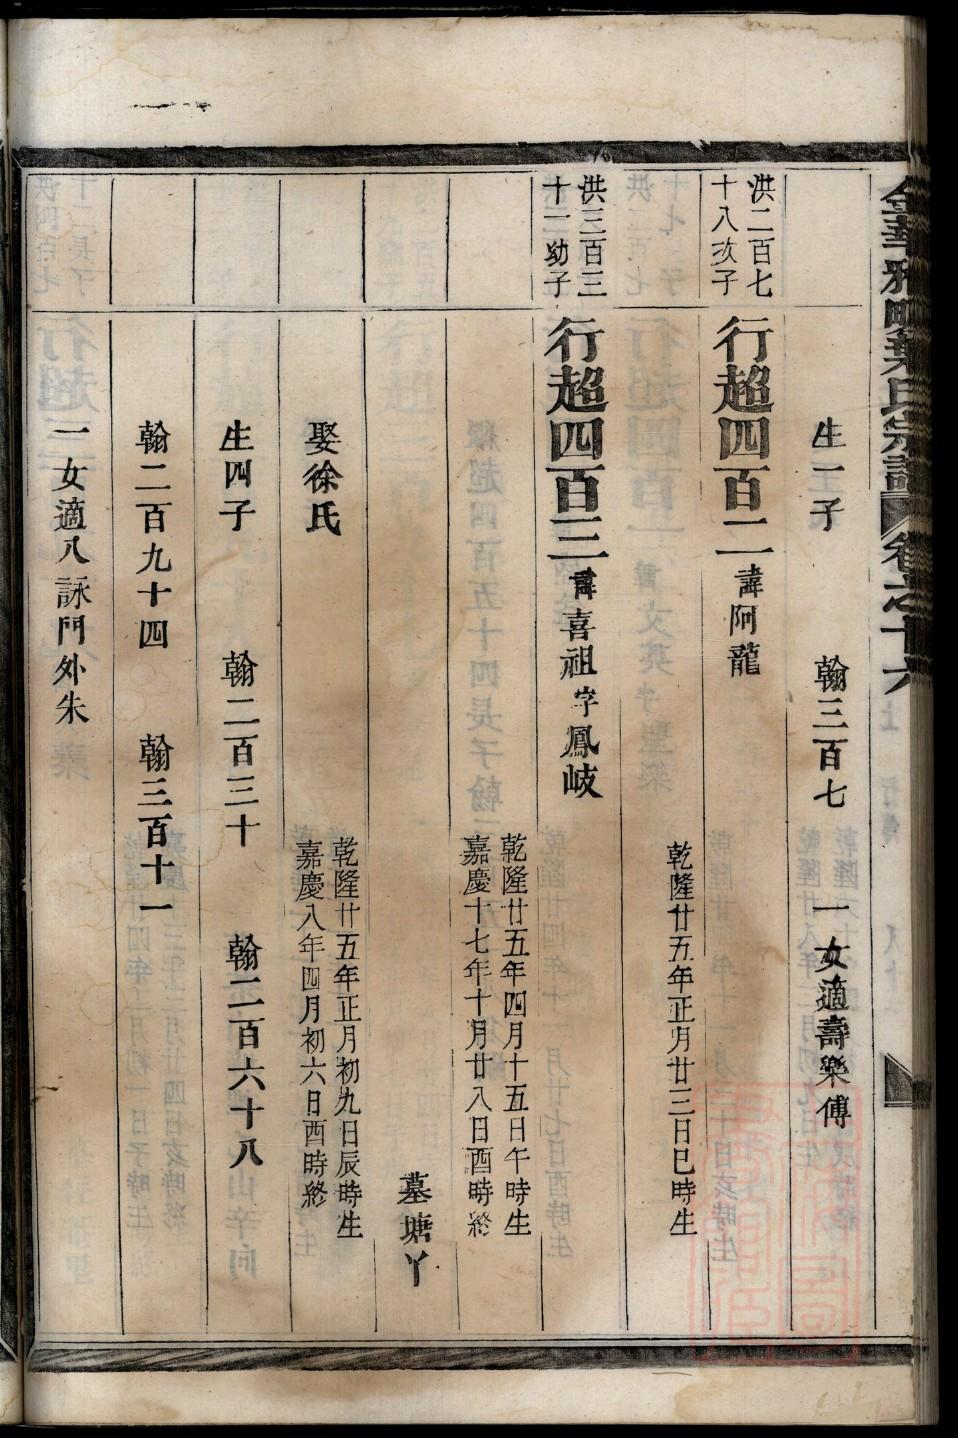 金華雅畈葉氏宗譜 卷之十六
生一子 翰三百七 一女適壽樂傅
洪二百七
十八次子
行超四百二 諱阿龍
乾隆廿五年正月廿三日巳時生
洪三百三
十一幼子
行超四百三 諱喜祖字鳳岐
乾隆廿五年四月十五日午時生
嘉慶十七年十月廿八日酉時終
墓塘丫
娶徐氏
乾隆廿五年正月初九日辰時生
嘉慶八年四月初六日酉時終
生四子 翰二百三十 翰二百六十八
翰二百九十四 翰三百十一
一女適八詠門外朱